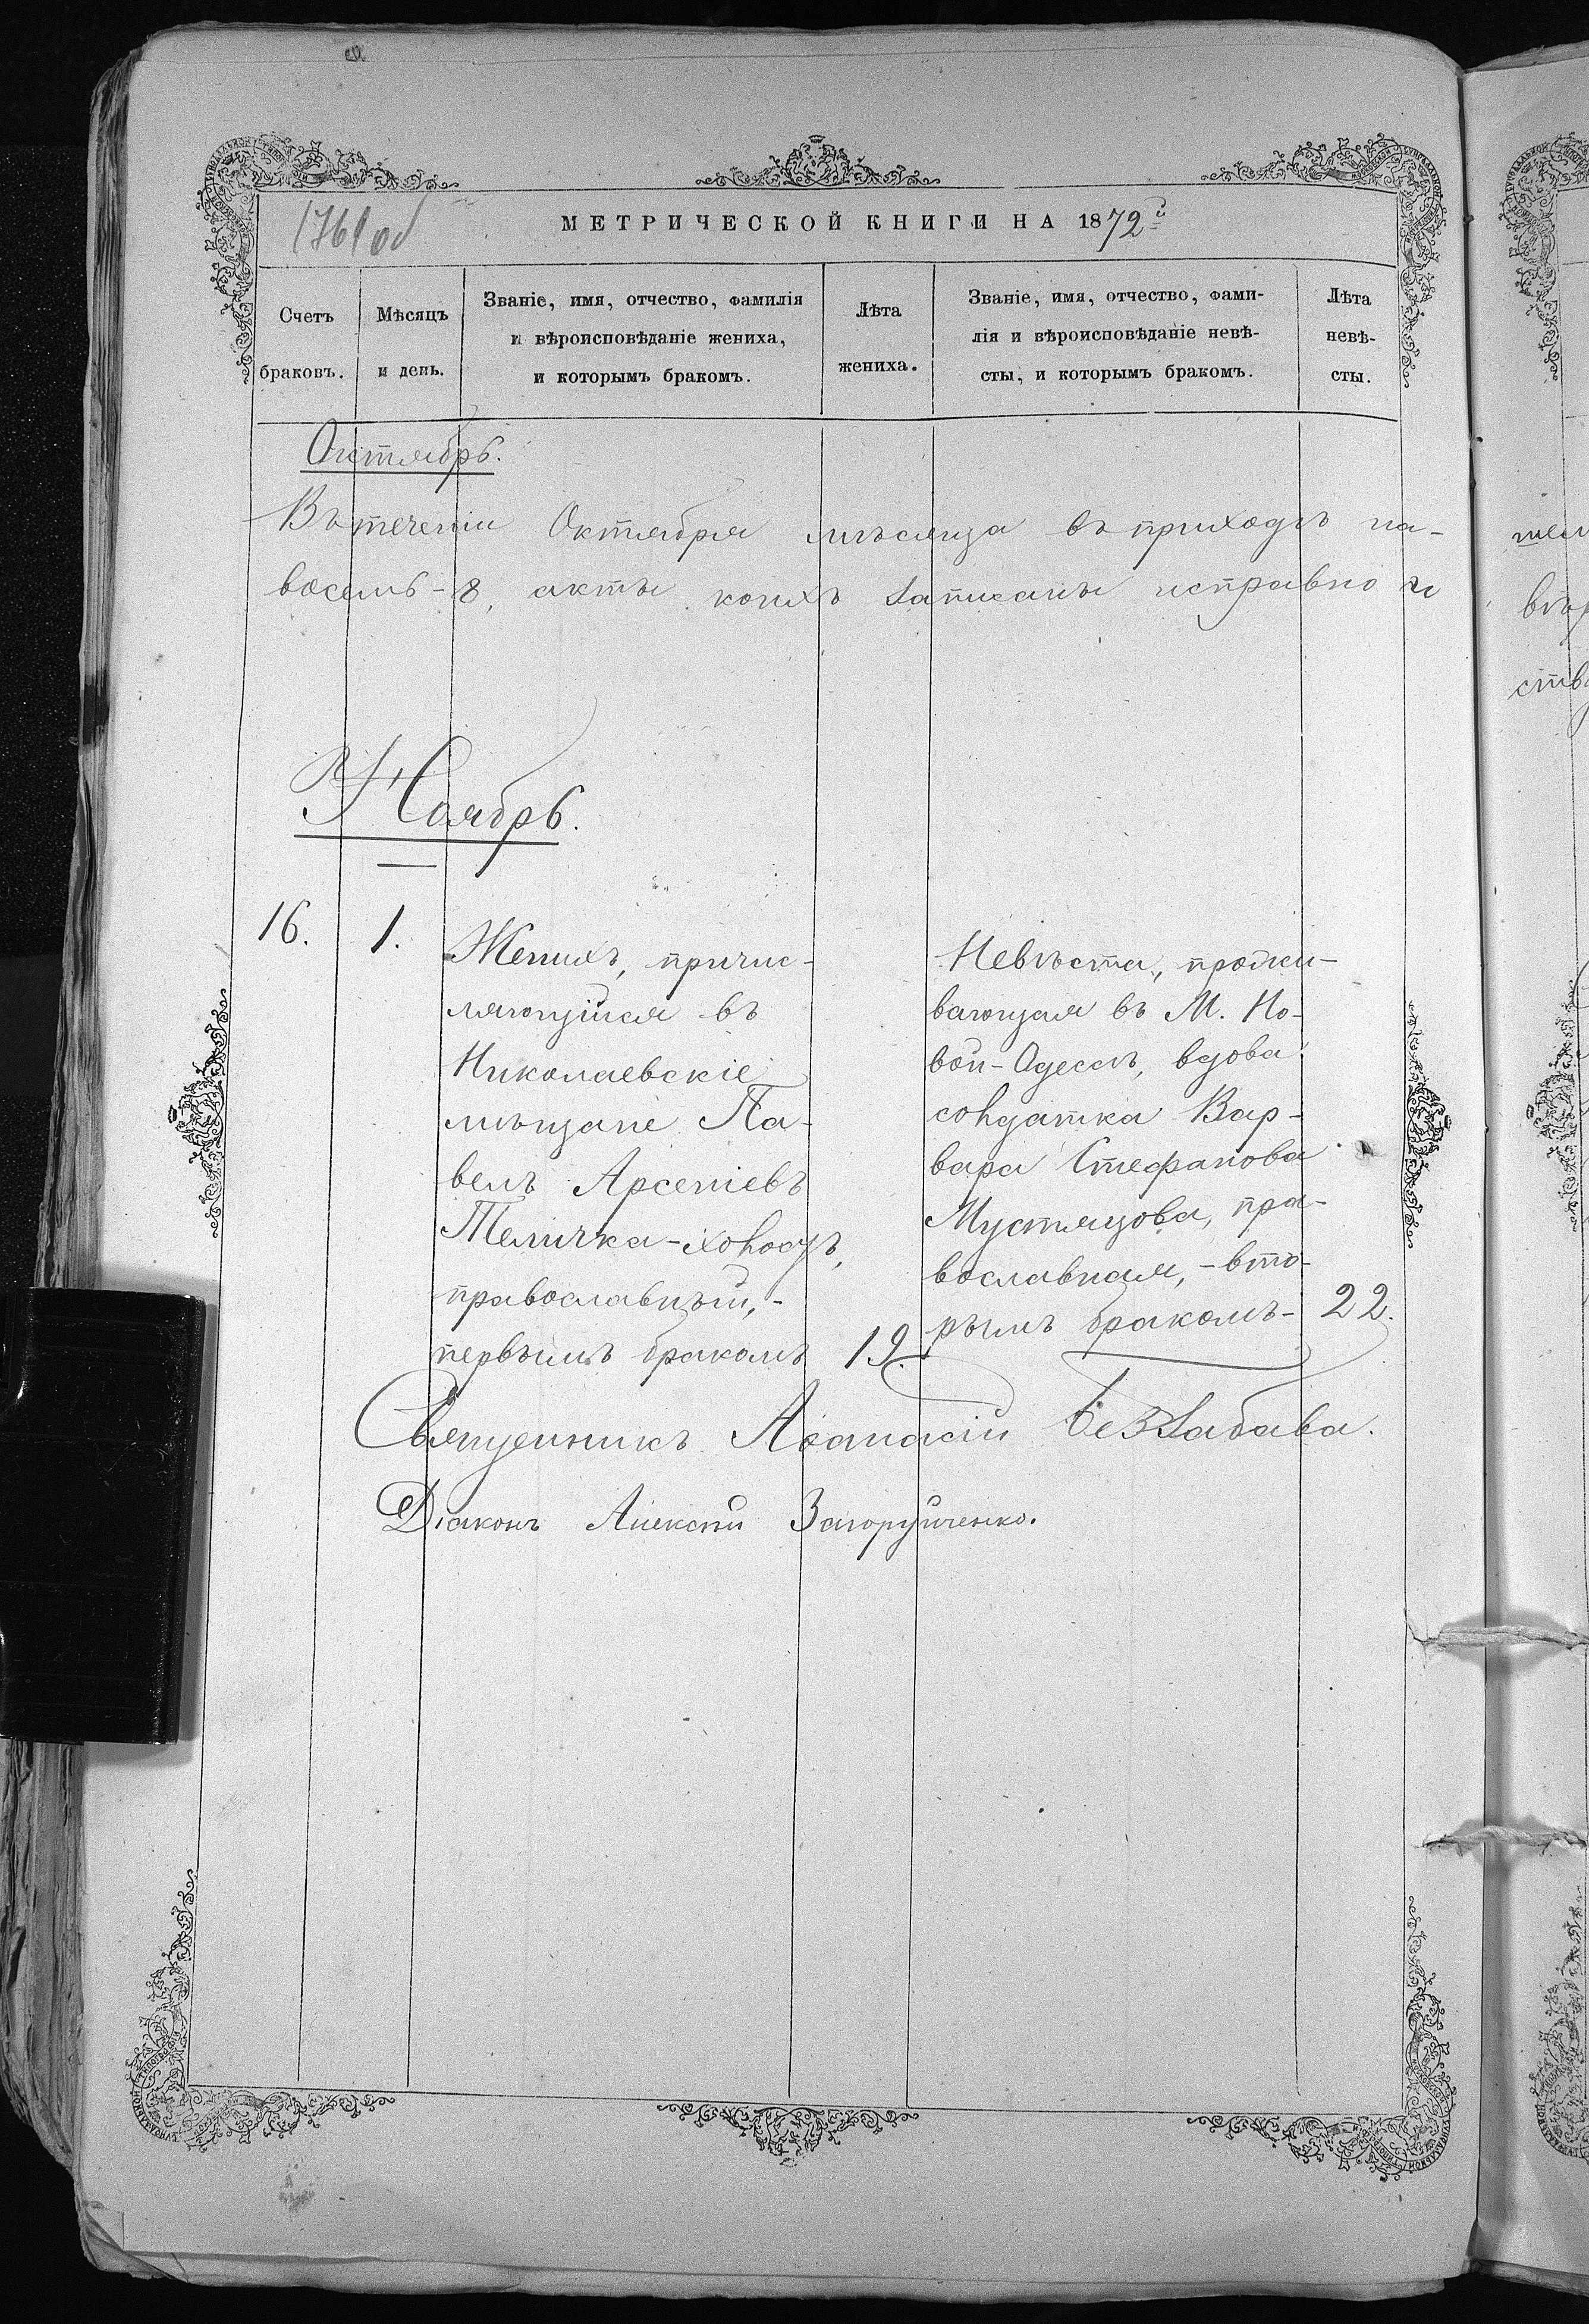 1761 об
МЕТРИЧЕСКОЙ КНИГИ НА 1872й
Счетъ браковъ.
Мѣсяцъ и день.
Званіе, имя, отчество, фамилія
и вѣроисповѣданіе жениха,
и которымъ бракомъ.
Лѣта жениха.
Званіе, имя, отчество, фами-
лія и вѣроисповѣданіе невѣ-
сты, и которымъ бракомъ.
Лѣта невѣ-
сты.
Октябрь.
Въ теченіи Октября мѣсяца въ приходѣ на-
восемь-8, акты коихъ записаны исправно и
Ноябрь.
16.
1.
Женихъ, причис-
ляющійся въ
Николаевскіе
мѣщане Па-
велъ Арсеніевъ
Теличка-
православный,-
первымъ бракомъ
19.
Невѣста, прожи-
вающая въ М. Но-
вой-Одессѣ, вдова
солдатка Вар-
вара Стефанова
Мустяцова, пра-
вославная,-вто-
рымъ бракомъ-
22.
Священникъ Аѳанасій Беззабава.
Діаконъ Алексѣй Загоруйченко.